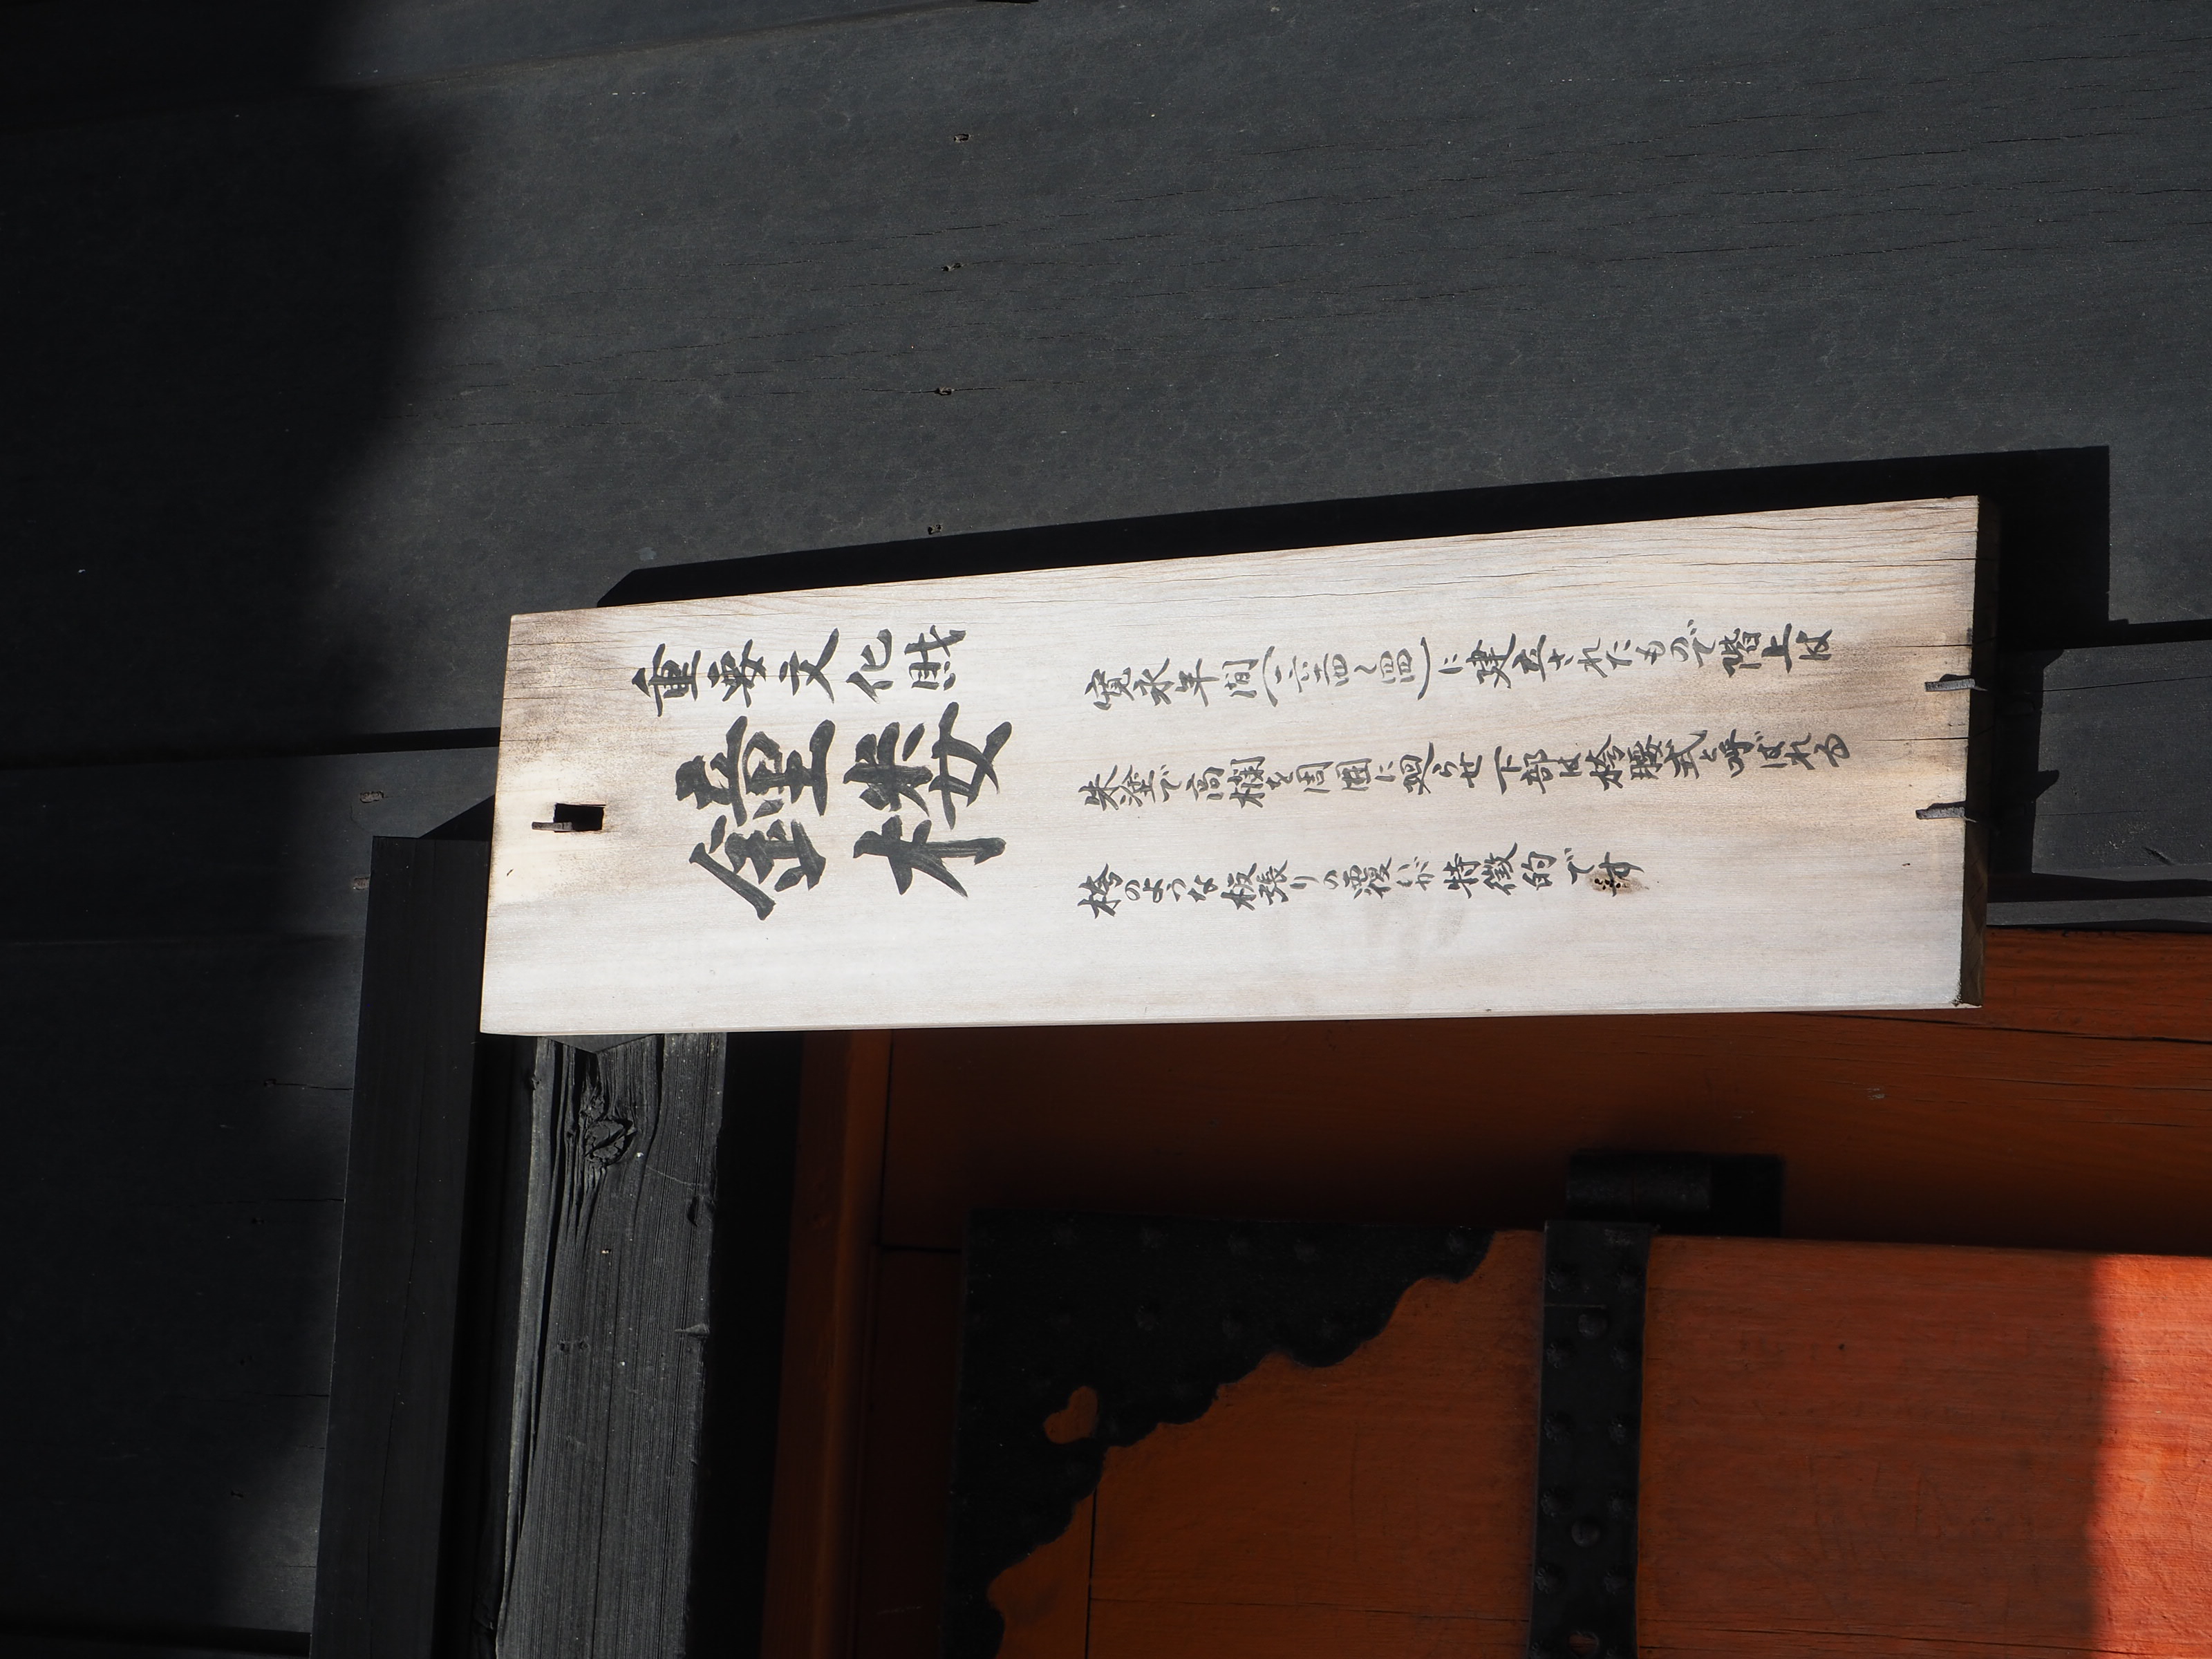 重要文化財
鐘楼
寛永年間(一六二四〜四四)に建立されたもので階上は
朱塗で高欄を周囲に廻らせ下部は袴腰式と呼ばれる
袴のような板張りの覆いが特徴的です